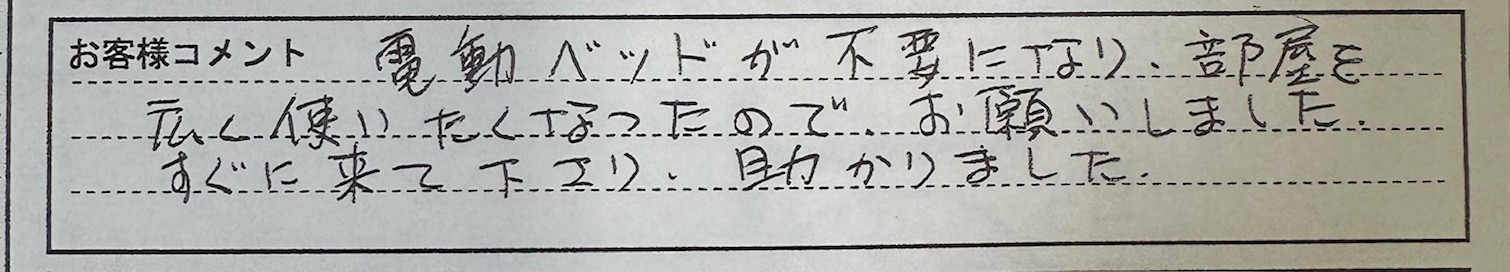 お客様コメント 電動ベッドが不要になり、部屋を
広く使いたくなったので、お願いしました.
すぐに来て下さり、助かりました.